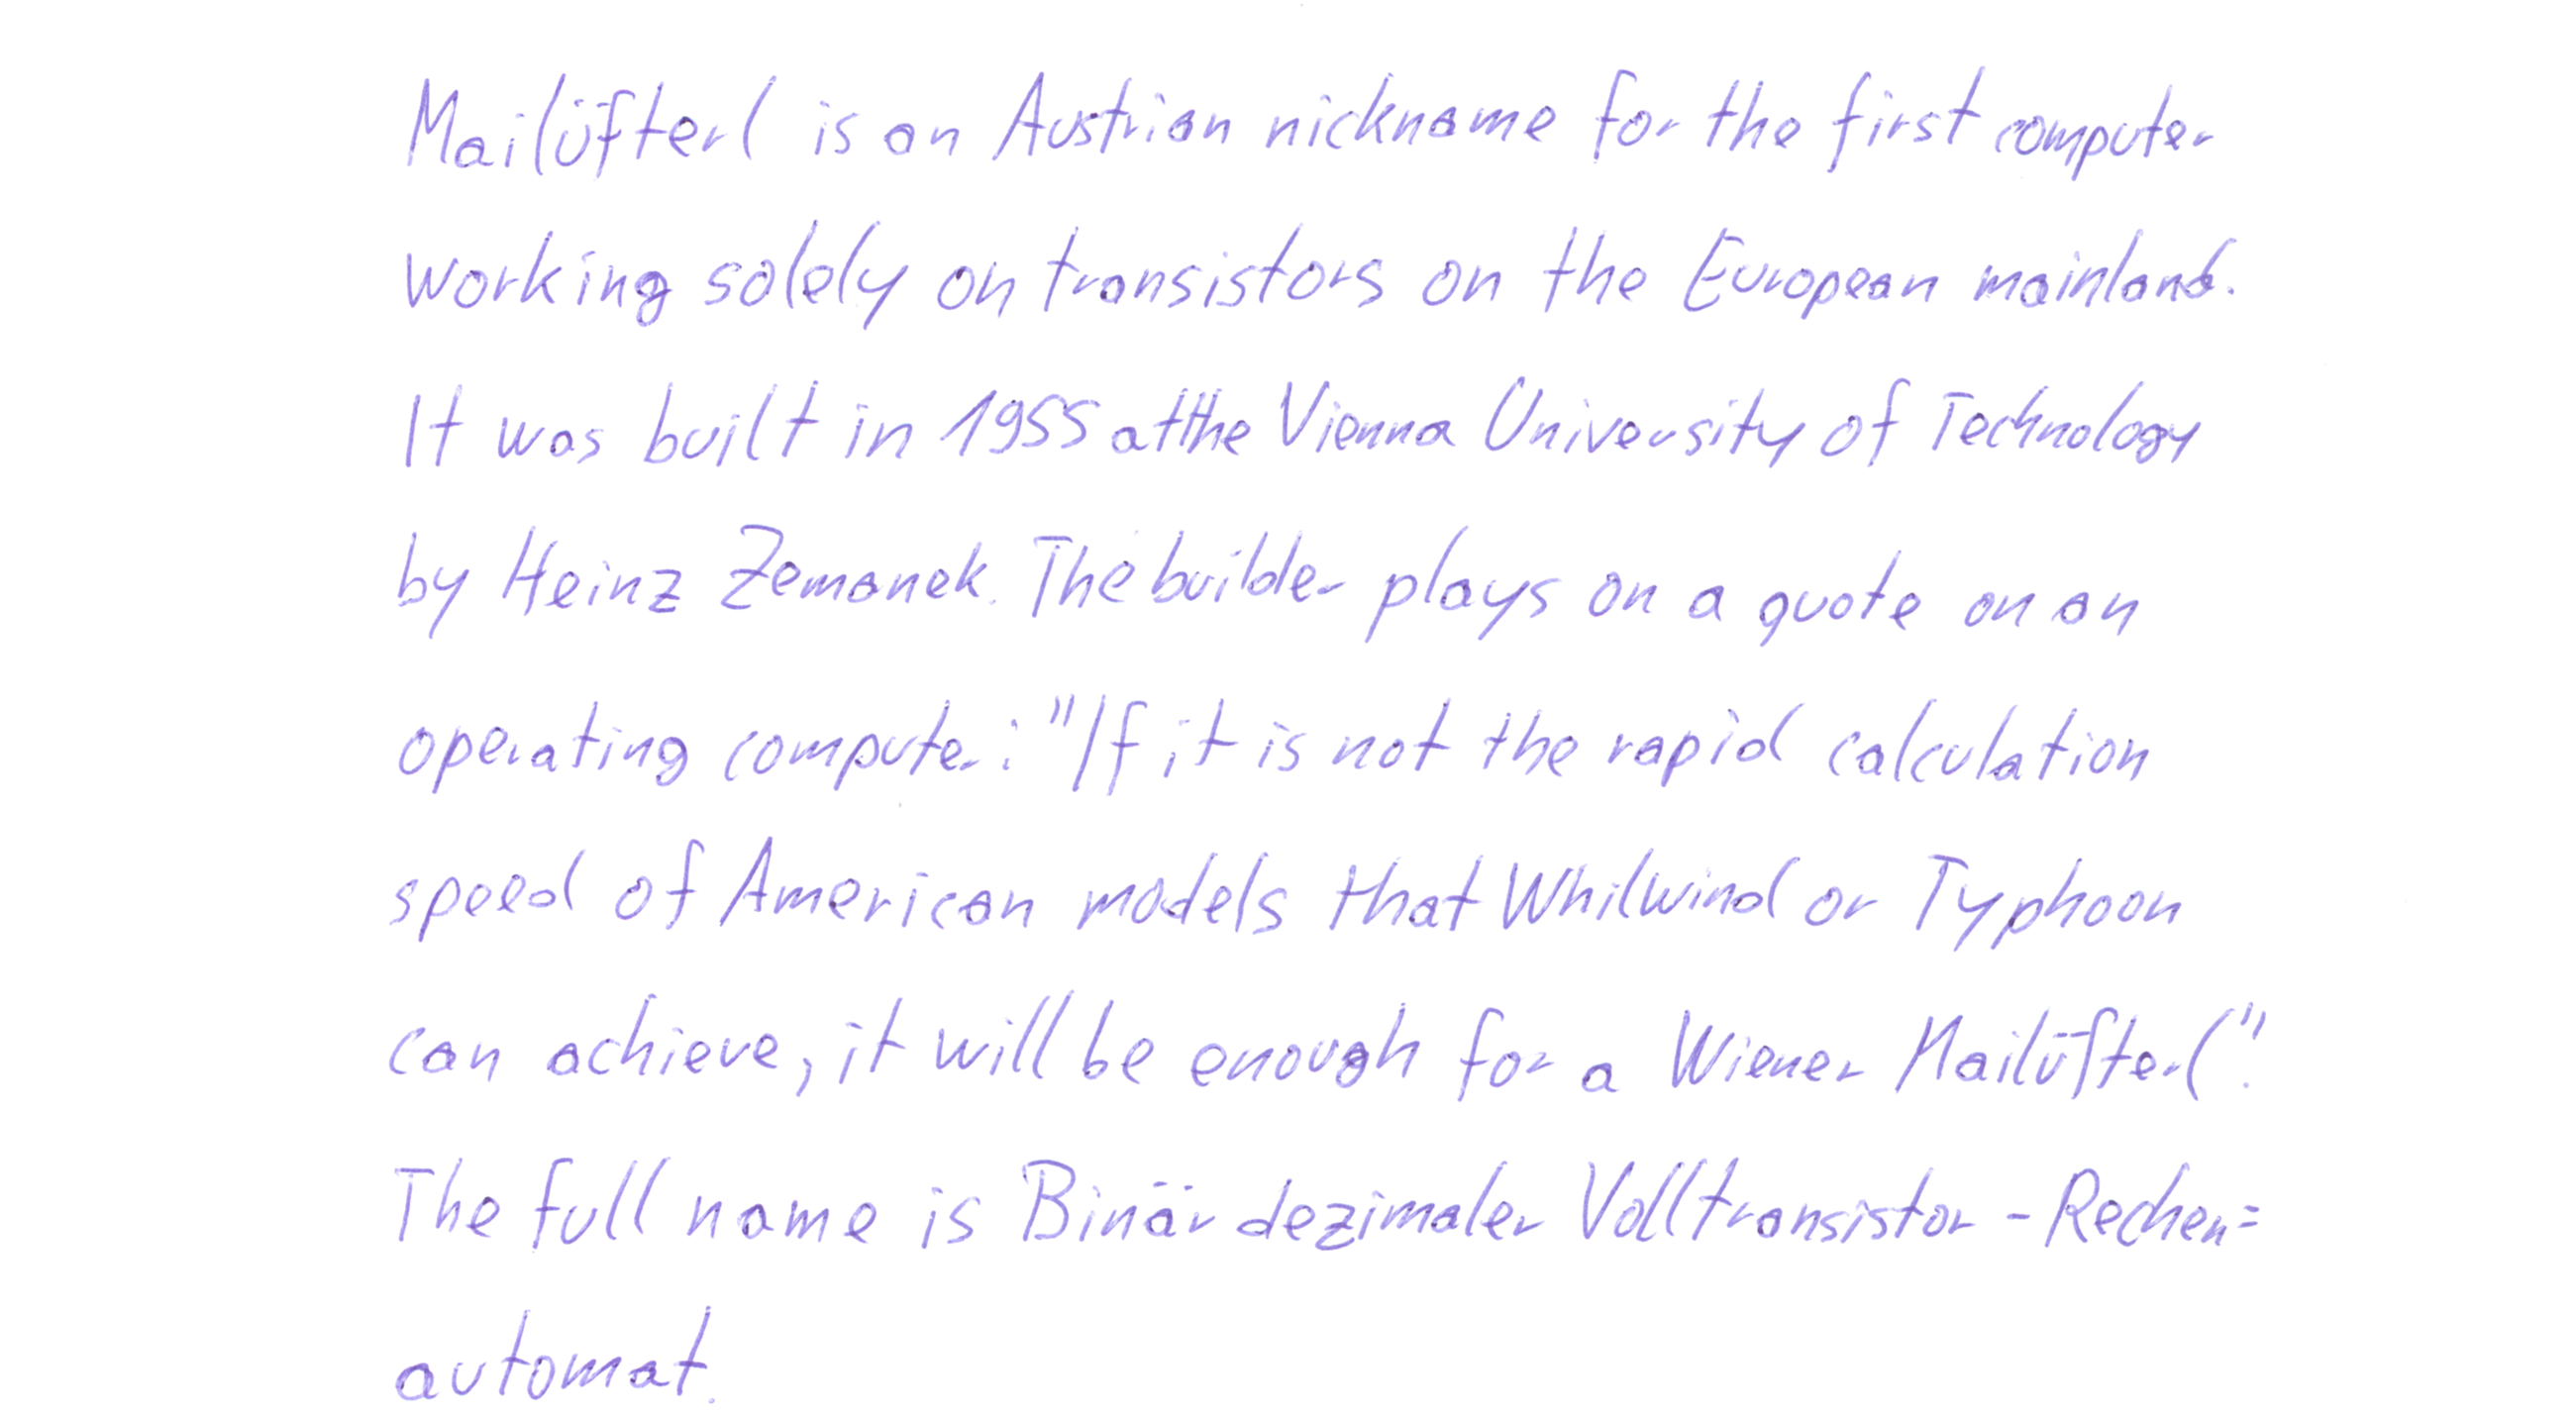 Mailüfterl is an Austrian nickname for the first computer
working solely on transistors on the European mainland.
It was built in 1955 at the Vienna University of Technology
by Heinz Zemanek. The builder plays on a quote on an
operating computer: "If it is not the rapid calculation
speed of American models that Whilwind or Typhoon
can achieve, it will be enough for a Wiener Mailüfterl".
The full name is Binär dezimaler Volltransistor - Rechen=
automat.